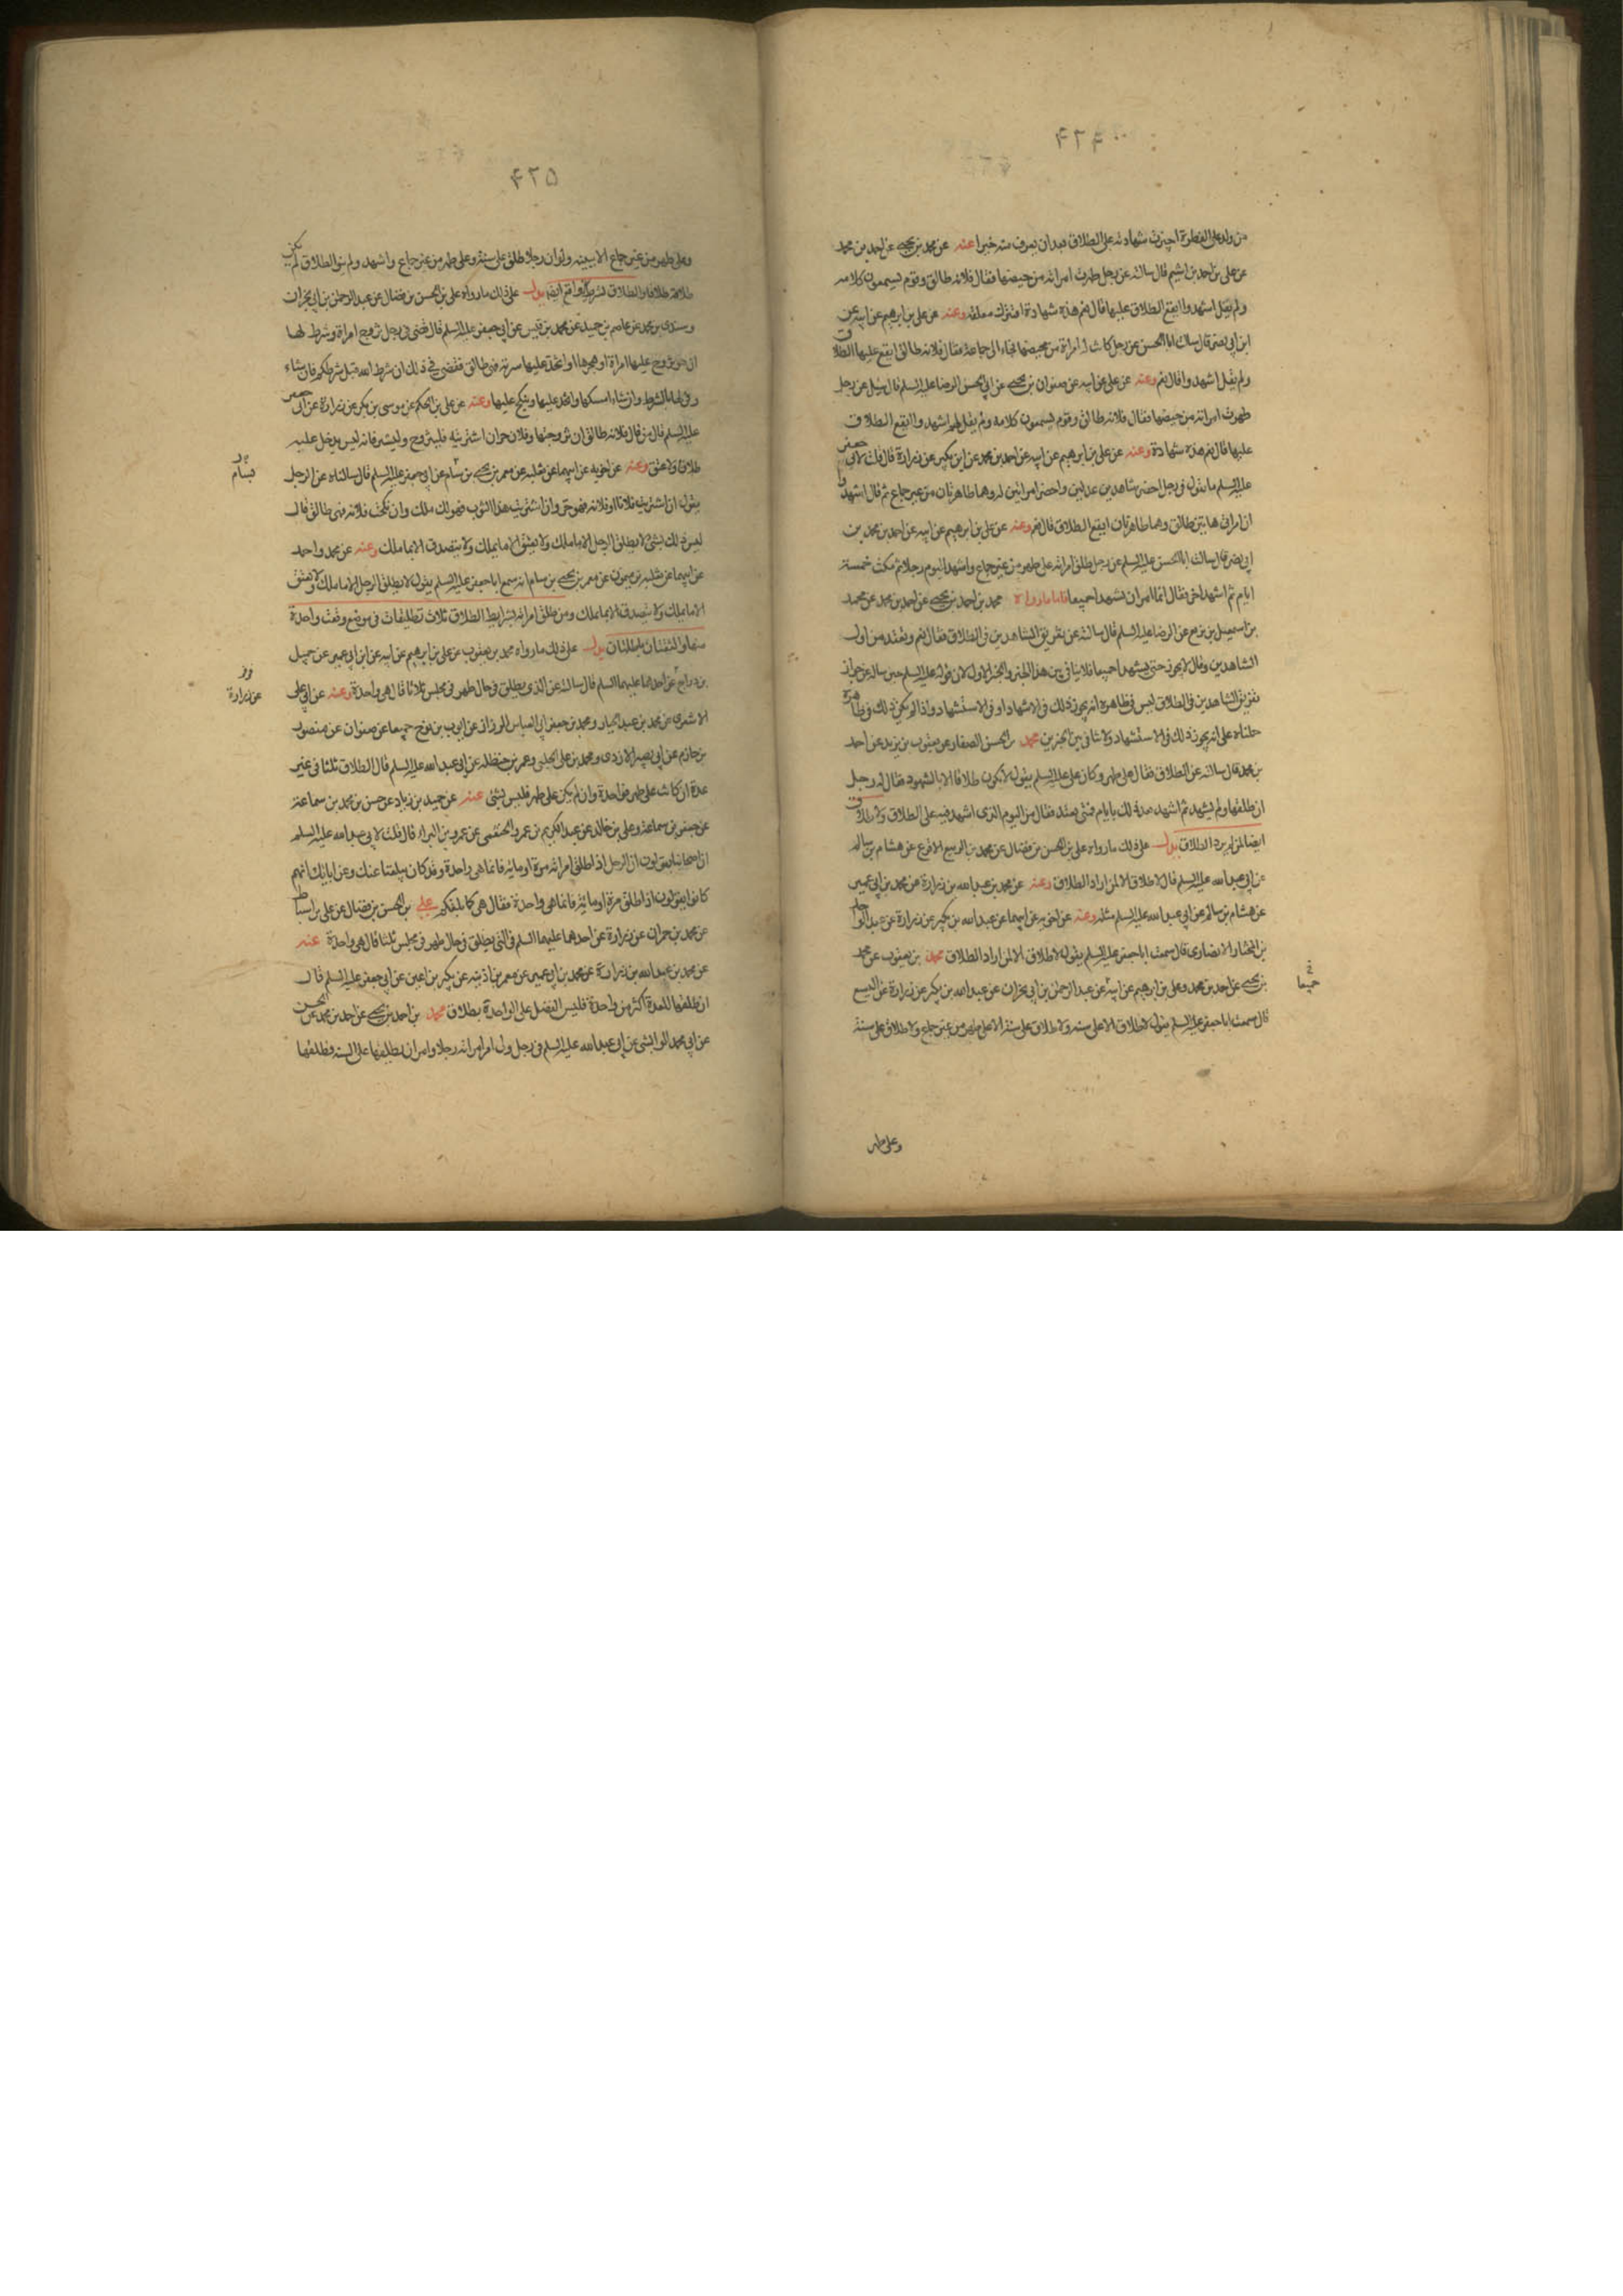 ۴۲۴
من ولد على الفطرة اجيزت شهادته على الطلاق بعد ان يعرف منه خيرا عنه عن محمد بن يحيى عن احمد بن محمد
عن على بن احمد بن اشيم قال سالته عن رجل طهرت امراته من حيضها فقال فلانه طالق وقوم يسمعون كلامه
ولم يقل اشهدوا ايقع الطلاق عليها قال نعم هذه شهادة افتترك معلقه وعنه عن على بن ابرهيم عن ابيه عن
ابن ابى نصر قال سالت ابا الحسن عن رجل كانت له امراة من محيضها فجاء الى جماعة فقال فلانه طالق ايقع عليها الطلاق
ولم يقل اشهدوا قال نعم وعنه عن على عن ابيه عن صفوان بن يحيى عن ابى الحسن الرضا عليه السلم قال سئل عن رجل
طهرت امراته من حيضها فقال فلانه طالق وقوم يسمعون كلامه ولم يقل لهم اشهدوا ايقع الطلاق
عليها قال نعم هذه شهادة وعنه عن على بن ابرهيم عن ابيه عن احمد بن محمد عن ابن بكير عن زرارة قال قلت لابى جعفر
عليه السلم ما تقول فى رجل احضر شاهدين عدلين واحضر امراتين له وهما طاهرتان من غير جماع ثم قال اشهدوا
ان امراتى هاتين طالق وهما طاهرتان ايقع الطلاق قال نعم وعنه عن على بن ابرهيم عن ابيه عن احمد بن محمد بن
ابى نصر قال سالت ابا الحسن عليه السلم عن رجل طلق امراته على طهر من غير جماع واشهد اليوم رجلا ثم مكث خمسة
ايام ثم اشهد اخر فقال انما امر ان يشهدا جميعا فاما ما رواه محمد بن احمد بن يحيى عن احمد بن محمد عن محمد
بن اسمعيل بن بزيع عن الرضا عليه السلم قال سالته عن تفريق الشاهدين فى الطلاق فقال نعم وتعتد من اول
الشاهدين وقال لا يجوز حتى يشهدا جميعا فلا ينافى بين هذا الخبر والخبر الاول لان قوله عليه السلم حين ساله عن جواز
تفريق الشاهدين فى الطلاق ليس فى ظاهره انه يجوز ذلك فى الاشهاد او فى الاستشهاد واذا لم يكن ذلك فى ظاهره
حملناه على انه يجوز ذلك فى الاستشهاد ولا تنافى بين الخبرين محمد بن الحسن الصفار عن يعقوب بن يزيد عن احمد
بن محمد قال سالته عن الطلاق فقال على طهر وكان على عليه السلم يقول لا يكون طلاقا الا بالشهود فقال له رجل
ان طلقها ولم يشهد ثم اشهد بعد ذلك بايام فمتى تعتد فقال من اليوم الذى اشهد فيه على الطلاق ولا طلاق
ايضا لمن لم يرد الطلاق يدل على ذلك ما رواه على بن الحسن بن فضال عن محمد بن الربيع الاقرع عن هشام بن سالم
عن ابى عبد الله عليه السلم قال لا طلاق الا لمن اراد الطلاق وعنه عن محمد بن عبد الله بن زرارة عن محمد بن ابى عمير
عن هشام بن سالم عن ابى عبد الله عليه السلم مثله وعنه عن اخويه عن ابيهما عن عبد الله بن بكير عن زرارة عن عبد الواحد
بن المختار الانصارى قال سمعت ابا جعفر عليه السلم يقول لا طلاق الا لمن اراد الطلاق محمد بن يعقوب عن محمد
بن يحيى عن احمد بن محمد وعلى بن ابرهيم عن ابيه عن عبد الرحمن بن ابى نجران عن عبد الله بن بكير عن زرارة عن اليسع
جميعا
قال سمعت ابا جعفر عليه السلم يقول لا طلاق الا على سنه ولا طلاق على سنة الا على طهر من غير جماع ولا طلاق على سنة
وعلى طهر
۴۲۵
وعلى طهر من غير جماع الا ببينه ولو ان رجلا طلق على سنة وعلى طهر من غير جماع واشهد ولم ينو الطلاق لم يكن
طلاقه طلاقا والطلاق لشرط واقع ايضا يدل على ذلك ما رواه على بن الحسن بن فضال عن عبد الرحمن بن ابى نجران
وسندى بن محمد عن عاصم بن حميد عن محمد بن قيس عن ابى جعفر عليه السلم قال قضى فى رجل تزوج امراة وشرط لها
ان هو تزوج عليها امراة او هجرها او اتخذ عليها سرية فهى طالق فقضى فى ذلك ان شرط الله قبل شرطكم فان شاء
وفى لها بالشرط وان شاء امسكها واتخذ عليها ونكح عليها وعنه عن على بن الحكم عن موسى بن بكر عن زرارة عن ابى جعفر
عليه السلم قال من قال فلانه طالق ان تزوجتها وفلان حر ان اشتريته فليتزوج وليشتر فانه ليس يدخل عليه
طلاق ولا عتق وعنه عن اخويه عن ابيهما عن ثعلبه عن معمر بن يحيى بن سام عن ابى جعفر عليه السلم قال سالناه عن الرجل
بسام
يقول ان اشتريت فلانا او فلانه فهو حر وان اشتريت هذا الثوب فهو لك ملك وان نكحت فلانه فهى طالق قال
ليس ذلك بشئ لا يطلق الرجل الا ما ملك ولا يعتق الا ما يملك ولا يتصدق الا بما ملك وعنه عن محمد واحمد
عن ابيهما عن ثعلبه بن ميمون عن معمر بن يحيى بن سام انه سمع ابا جعفر عليه السلم يقول لا يطلق الرجل الا ما ملك ولا يعتق
الا ما يملك ولا يتصدق الا بما ملك ومن طلق امراته بشرايط الطلاق ثلاث تطليقات فى موضع وقعت واحدة
منها والثنتان باطلتان يدل على ذلك ما رواه محمد بن يعقوب عن على بن ابرهيم عن ابيه عن ابن ابى عمير عن جميل
بن دراج عن احدهما عليهما السلم قال سالته عن الذى يطلق فى حال طهر فى مجلس ثلاثا قال هى واحدة وعنه عن ابى على
عن زرارة
الاشعرى عن محمد بن عبد الجبار ومحمد بن جعفر ابى العباس الرزاز عن ايوب بن نوح جميعا عن صفوان عن منصور
بن حازم عن ابى بصير الازدى ومحمد بن على الحلبى وعمر بن حنظله عن ابى عبد الله عليه السلم قال الطلاق ثلثا فى غير
عدة ان كانت على طهر فواحدة وان لم يكن على طهر فليس بشئ عنه عن حميد بن زياد عن حسن بن محمد بن سماعة
عن جعفر بن سماعة وعلى بن خالد عن عبد الكريم بن عمرو الخثعمى عن عمرو بن البراء قال قلت لابى عبد الله عليه السلم
ان اصحابنا يقولون ان الرجل اذا طلق امراته مرة او مائة فانما هى واحدة وقد كان يبلغنا عنك وعن ابائك انهم
كانوا يقولون اذا طلق مرة او مائة فانما هى واحدة فقال هى كما بلغكم على بن الحسن بن فضال عن على بن اسباط
عن محمد بن حمران عن زرارة عن احدهما عليهما السلم فى التى يطلق فى حال طهر فى مجلس ثلثا قال هى واحدة عنه
عن محمد بن عبد الله بن زرارة عن محمد بن ابى عمير عن عمر بن اذينه عن بكير بن اعين عن ابى جعفر عليه السلم قال
ان طلقها للعدة اكثر من واحدة فليس الفضل على الواحدة بطلاق محمد بن احمد بن يحيى عن احمد بن محمد عن الحسن
عن ابى محمد الوابشى عن ابى عبد الله عليه السلم فى رجل ولى امر امراته رجلا وامر ان يطلقها على السنه فطلقها